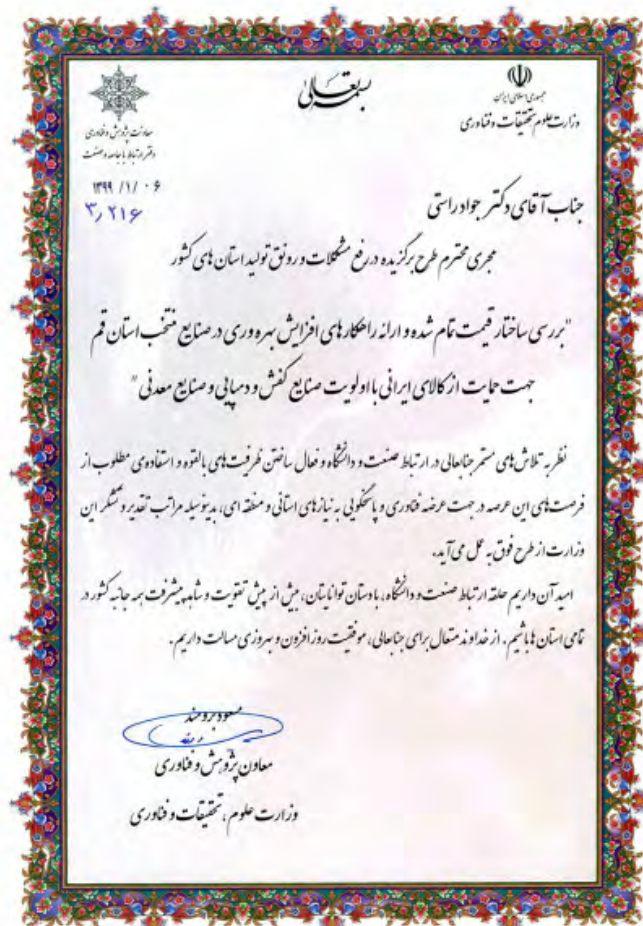 بسمه تعالی
جمهوری اسلامی ایران
وزارت علوم تحقیقات و فناوری
معاونت پژوهش و فناوری
دفتر ارتباط با جامعه و صنعت
۱۳۹۹ /۱/ ۰۶
۳٫۲۱۶
جناب آقای دکتر جواد راستی
مجری محترم طرح برگزیده در رفع مشکلات و رونق تولید استان های کشور
"بررسی ساختار قیمت تمام شده و ارائه راهکارهای افزایش بهره وری در صنایع منتخب استان قم
جهت حمایت از کالای ایرانی با اولویت صنایع کفش و دمپایی و صنایع معدنی"
نظر به تلاش های مستمر جنابعالی در ارتباط صنعت و دانشگاه و فعال ساختن ظرفیت های بالقوه و استفاده‌ی مطلوب از
فرصت های این عرصه در جهت عرضه فناوری و پاسخگویی به نیازهای استانی و منطقه ای، بدینوسیله مراتب تقدیر و تشکر این
وزارت از طرح فوق به عمل می آید.
امید آن داریم حلقه ارتباط صنعت و دانشگاه، با دستان توانایتان، بیش از پیش تقویت و شاهد پیشرفت همه جانبه کشور در
تمامی استان ها باشیم. از خداوند متعال برای جنابعالی، موفقیت روز افزون و بهروزی مسالت داریم.
مسعود برومند
معاون پژوهش و فناوری
وزارت علوم، تحقیقات و فناوری